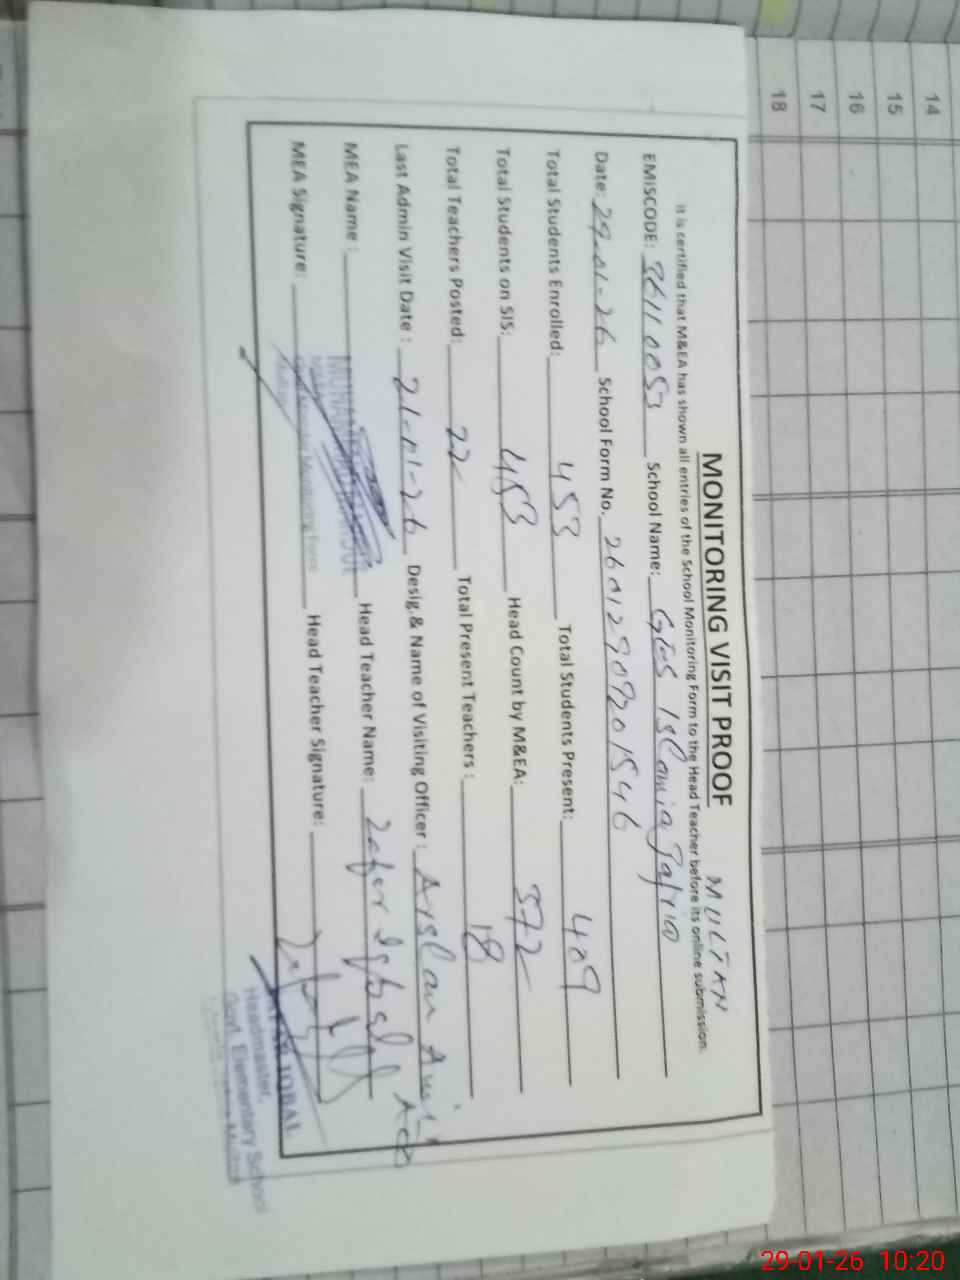 MONITORING VISIT PROOF
MULTAN
It is certified that M&EA has shown all entries of the School Monitoring Form to the Head Teacher before its online submission.
EMISCODE: 36110053 School Name: GES Islamia
Date: 29-01-26 School Form No. 26012909201546
Total Students Enrolled: 453 Total Students Present: 409
Total Students on SIS: 453 Head Count by M&EA: 372
Total Teachers Posted: 22 Total Present Teachers : 18
Last Admin Visit Date : 21-01-26 Desig.& Name of Visiting Officer : Arslan Amin AEO
MEA Name : Head Teacher Name: Zafar Iqbal
MEA Signature: Head Teacher Signature:
Monitoring Force
IQBAL
Headmaster,
Govt. Elementary School
18
17
16
15
14
29-01-26 10:20